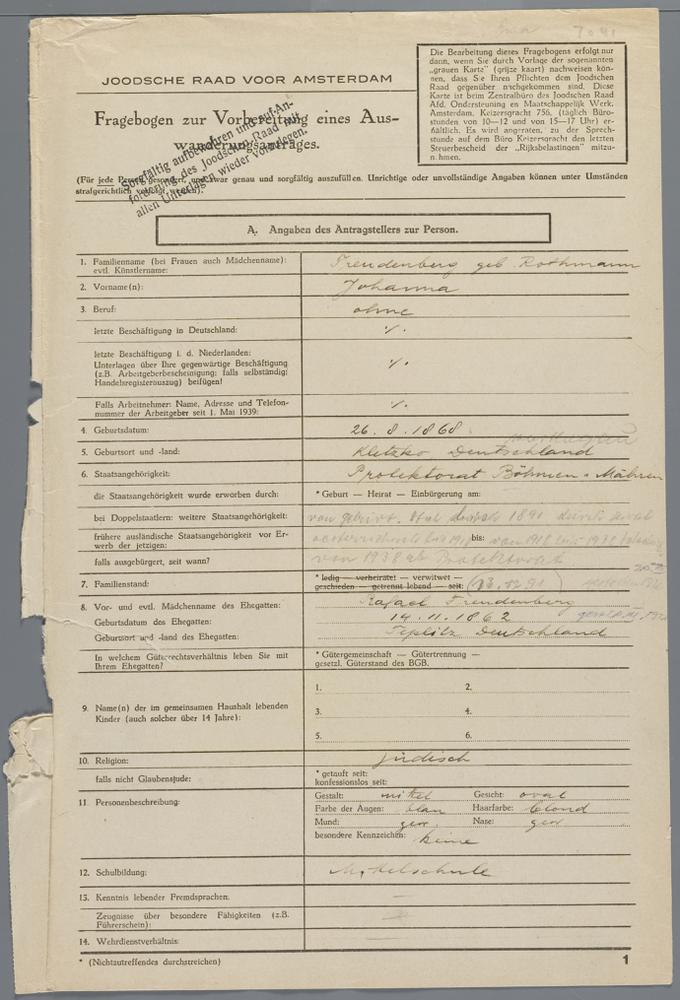 JOODSCHE RAAD VOOR AMSTERDAM
Fragebogen zur Vorbereitung eines Aus-
wanderungsantrages.
Sorgfältig aufbewahren und auf An-
forderung des Joodschen Raad mit
allen Unterlagen wieder vorzulegen.
Die Bearbeitung dieses Fragebogens erfolgt nur
dann, wenn Sie durch Vorlage der sogenannten
„grauen Karte" (grijze kaart) nachweisen kön-
nen, dass Sie Ihren Pflichten dem Joodschen
Raad gegenüber nachgekommen sind. Diese
Karte ist beim Zentralbüro des Joodschen Raad
Afd. Ondersteuning en Maatschappelijk Werk,
Amsterdam, Keizersgracht 756, (täglich Büro-
stunden von 10—12 und von 15—17 Uhr) er-
hältlich. Es wird angeraten, zu der Sprech-
stunde auf dem Büro Keizersgracht den letzten
Steuerbescheid der „Rijksbelastingen" mitzu-
nehmen.
(Für jede Person gesondert, und zwar genau und sorgfältig auszufüllen. Unrichtige oder unvollständige Angaben können unter Umständen
strafgerichtlich verfolgt werden).
A. Angaben des Antragstellers zur Person.
1. Familienname (bei Frauen auch Mädchenname): Freudenberg geb. Rothmann
evtl. Künstlername:
2. Vorname(n): Johanna
3. Beruf: ohne
letzte Beschäftigung in Deutschland: ./.
letzte Beschäftigung i. d. Niederlanden:
Unterlagen über Ihre gegenwärtige Beschäftigung ./.
(z.B. Arbeitgeberbescheinigung; falls selbständig:
Handelsregisterauszug) beifügen!
Falls Arbeitnehmer: Name, Adresse und Telefon- ./.
nummer der Arbeitgeber seit 1. Mai 1939:
4. Geburtsdatum: 26. 8. 1868.
5. Geburtsort und -land: Kletzko Deutschland
6. Staatsangehörigkeit: Protektorat Böhmen - Mähren
die Staatsangehörigkeit wurde erworben durch: * Geburt — Heirat — Einbürgerung am:
bei Doppelstaatlern: weitere Staatsangehörigkeit: von geburt. 1891 durch
frühere ausländische Staatsangehörigkeit vor Er- bis: von 1918 bis 1938
werb der jetzigen:
falls ausgebürgert, seit wann? von 1938 ab Protektorat
7. Familienstand: * ledig — verheiratet — verwitwet —
geschieden — getrennt lebend — seit: (13.12.91)
8. Vor- und evtl. Mädchenname des Ehegatten: Rafael Freudenberg
Geburtsdatum des Ehegatten: 14. 11. 1862
Geburtsort und -land des Ehegatten: Teplitz Deutschland
In welchem Güterrechtsverhältnis leben Sie mit * Gütergemeinschaft — Gütertrennung —
Ihrem Ehegatten? gesetzl. Güterstand des BGB.
1. 2.
9. Name(n) der im gemeinsamen Haushalt lebenden 3. 4.
Kinder (auch solcher über 14 Jahre):
5. 6.
10. Religion: jüdisch
falls nicht Glaubensjude: * getauft seit:
konfessionslos seit:
11. Personenbeschreibung: Gestalt: mittel Gesicht: oval
Farbe der Augen: blau Haarfarbe: blond
Mund: gew. Nase: gew
besondere Kennzeichen: keine
12. Schulbildung: Mittelschule
13. Kenntnis lebender Fremdsprachen. —
Zeugnisse über besondere Fähigkeiten (z.B.
Führerschein):
14. Wehrdienstverhältnis:
* (Nichtzutreffendes durchstreichen) 1